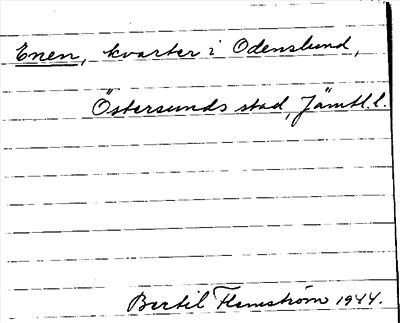 Enen, kvarter i Odenslund,
Östersunds stad, Jämtl. l.
Bertil Flemström 1944.